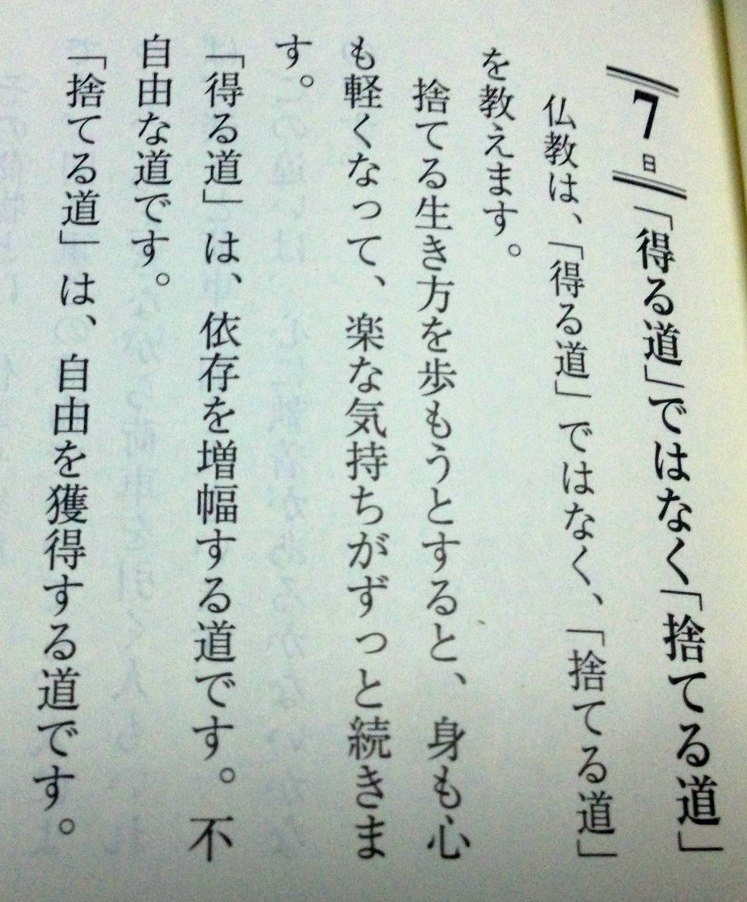 7日 「得る道」ではなく「捨てる道」
仏教は、「得る道」ではなく、「捨てる道」
を教えます。
捨てる生き方を歩もうとすると、身も心
も軽くなって、楽な気持ちがずっと続きま
す。
「得る道」は、依存を増幅する道です。不
自由な道です。
「捨てる道」は、自由を獲得する道です。